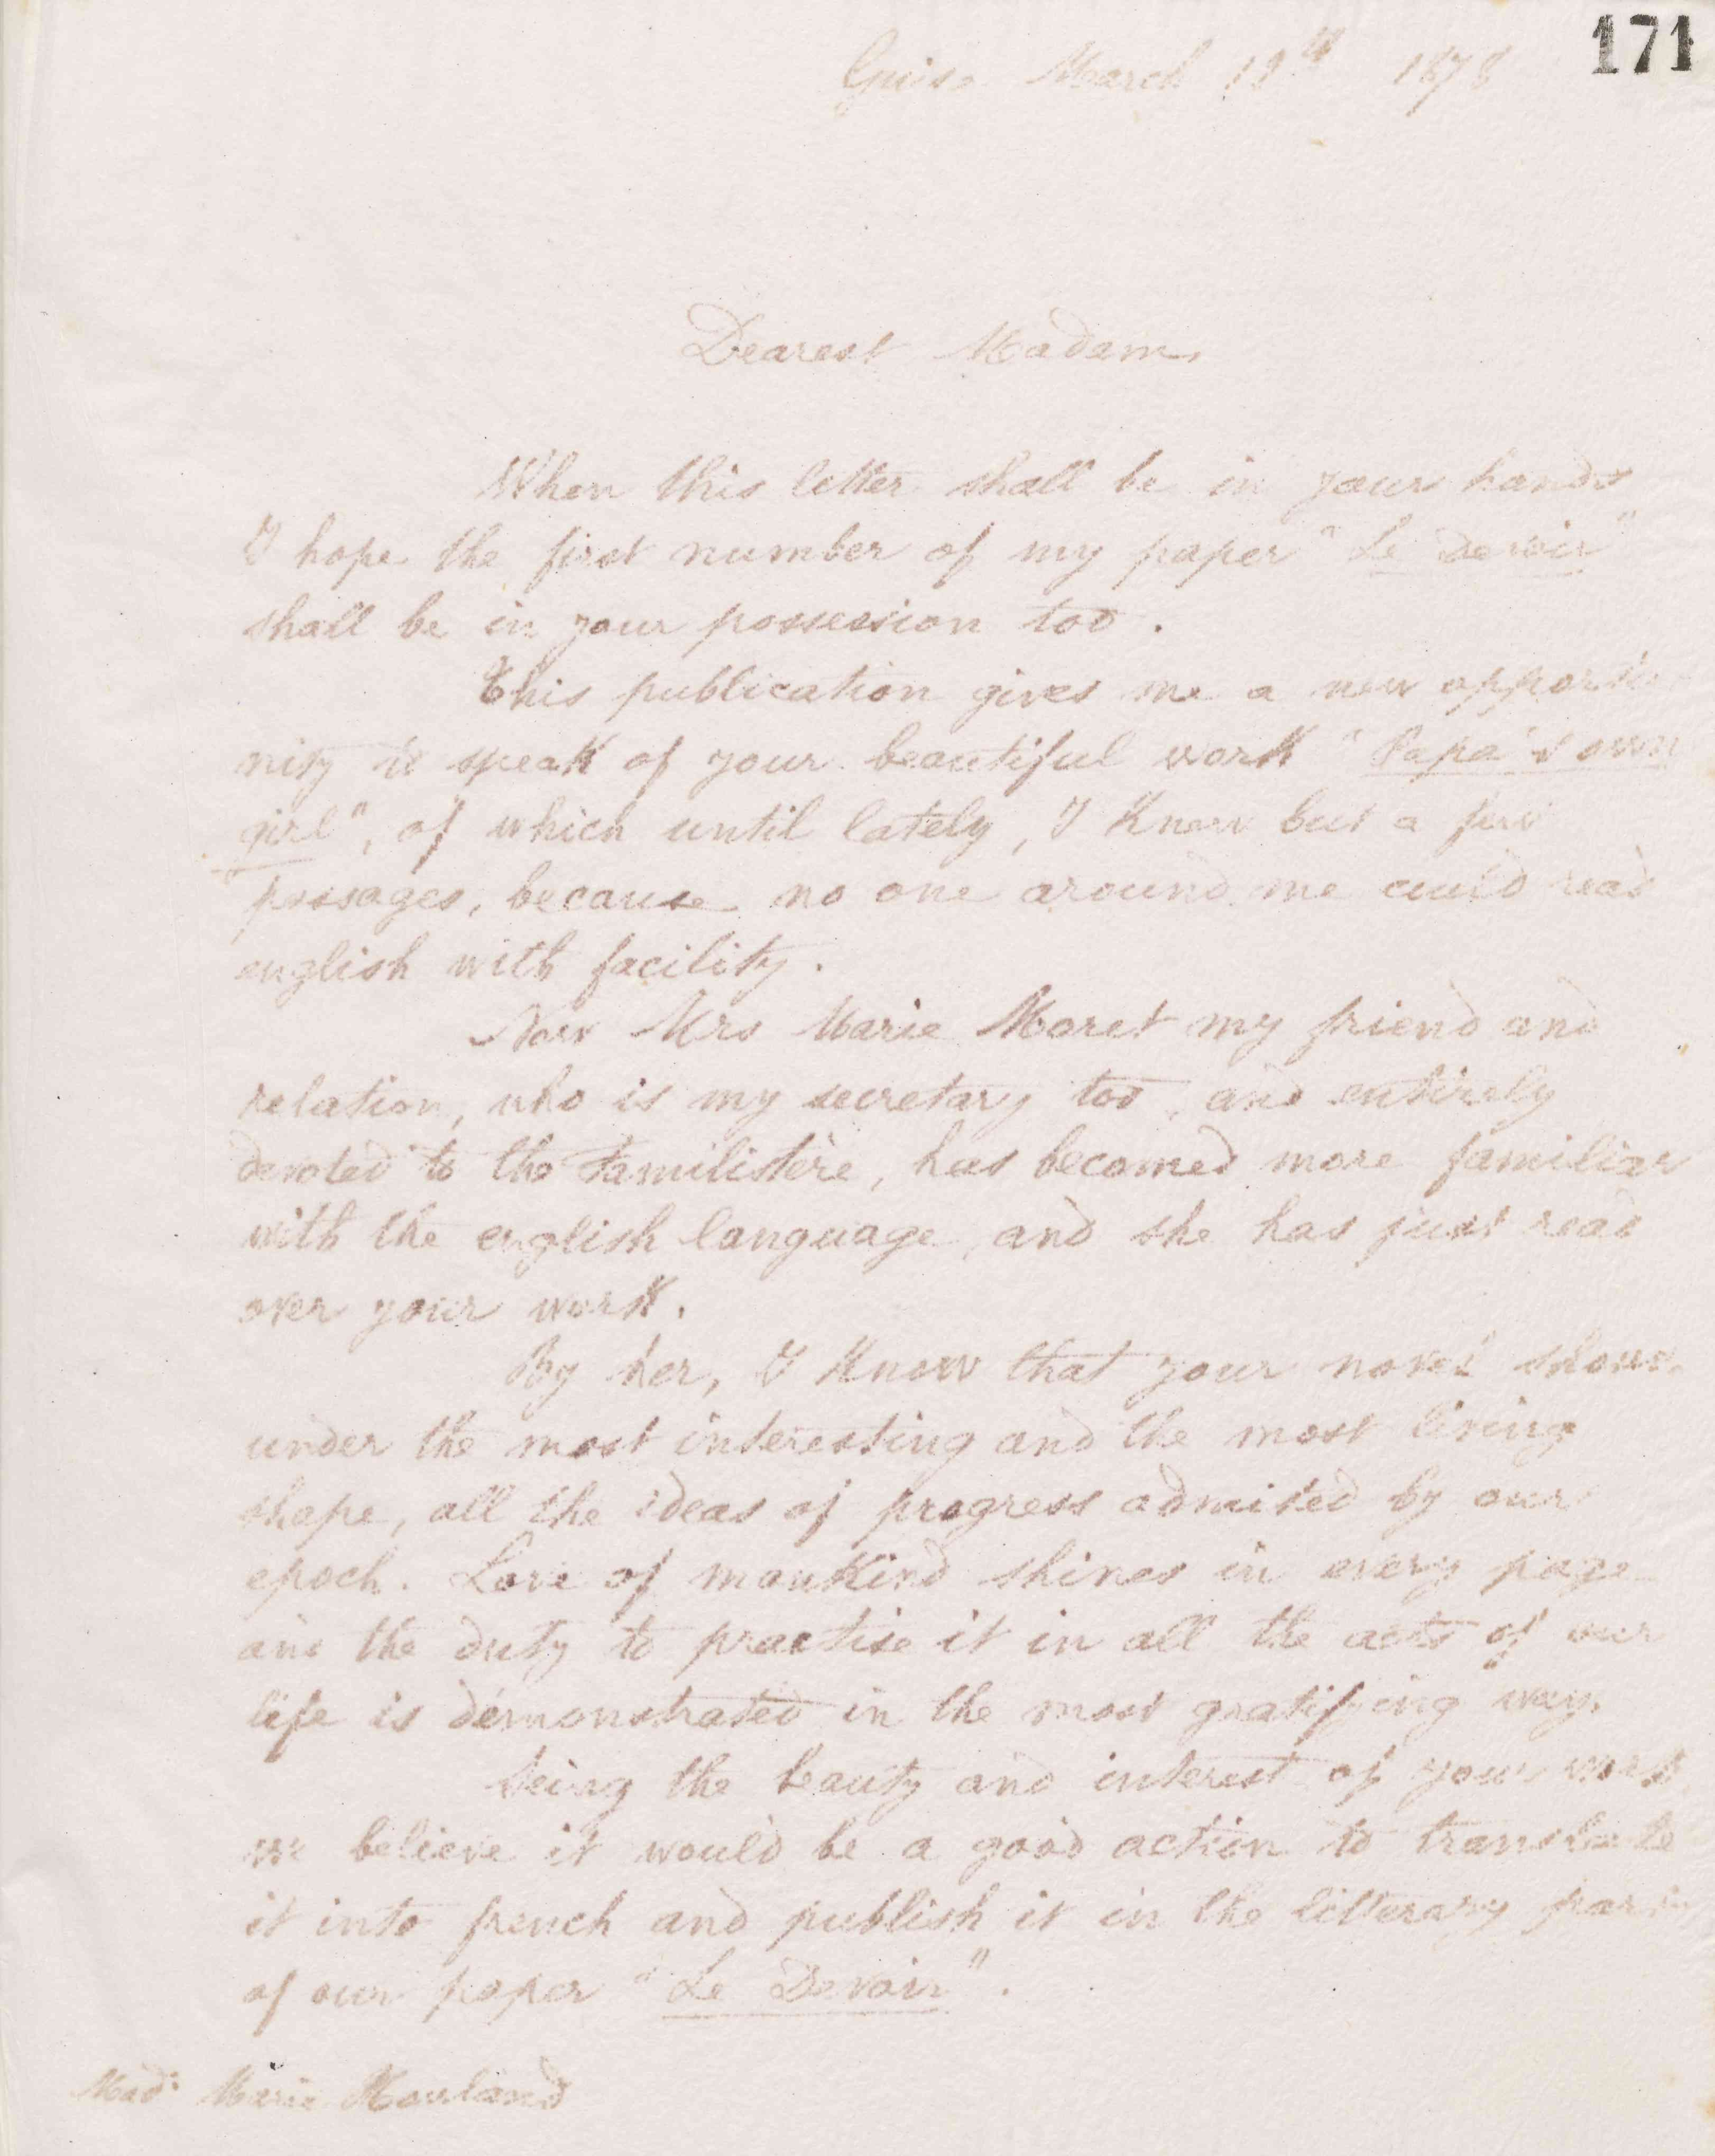 171
Guise March 19th 1878
Dearest Madam,
When this letter shall be in your hands
I hope the first number of my paper "Le Devoir"
shall be in your possession too.
This publication gives me a new opportu
nity to speak of your beautiful work "Papa's own
girl", of which until lately, I knew but a few
passages, because no one around me could read
english with facility.
Now Mrs Marie Moret my friend and
relation, who is my secretary too, and entirely
devoted to the Familistère, has becomed more familiar
with the english language, and she has just read
over your work.
By her, I know that your novel shows
under the most interesting and the most living
shape, all the ideas of progress admited by our
epoch. Love of mankind shines in every page
and the duty to practise it in all the acts of our
life is démonstrated in the most gratifying way.
Seing the beauty and interest of your work
we believe it would be a good action to translate
it into french and publish it in the litterary part
of our paper "Le Devoir".
Madᵉ Marie Howland